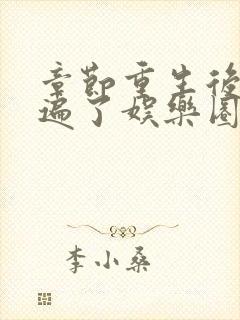 章节重生後
遍了娱樂圈
李小桑